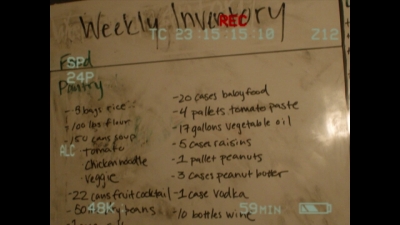 Weekly Inventory
REC
TC 23:15:15:10
Z12
Food
SP
24P
Pantry
- 5 bags rice
- 100 lbs flour
- 150 cans soup
ALC
- Tomato
- Chicken noodle
- Veggie
- 22 cans fruit cocktail
beans
- 20 cases baby food
- 4 pallets tomato paste
- 17 gallons vegetable oil
- 5 cases raisins
- 1 pallet peanuts
- 3 cases peanut butter
- 1 case vodka
- 10 bottles wine
48K
59 MIN